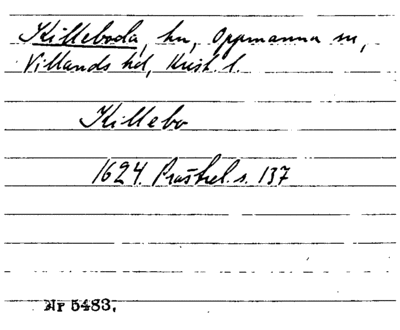 Killeboda, hn, Oppmanna sn,
Villands hd, Krist. l.
Killebo
1624. Prästrel. s. 137
Nr 5483.